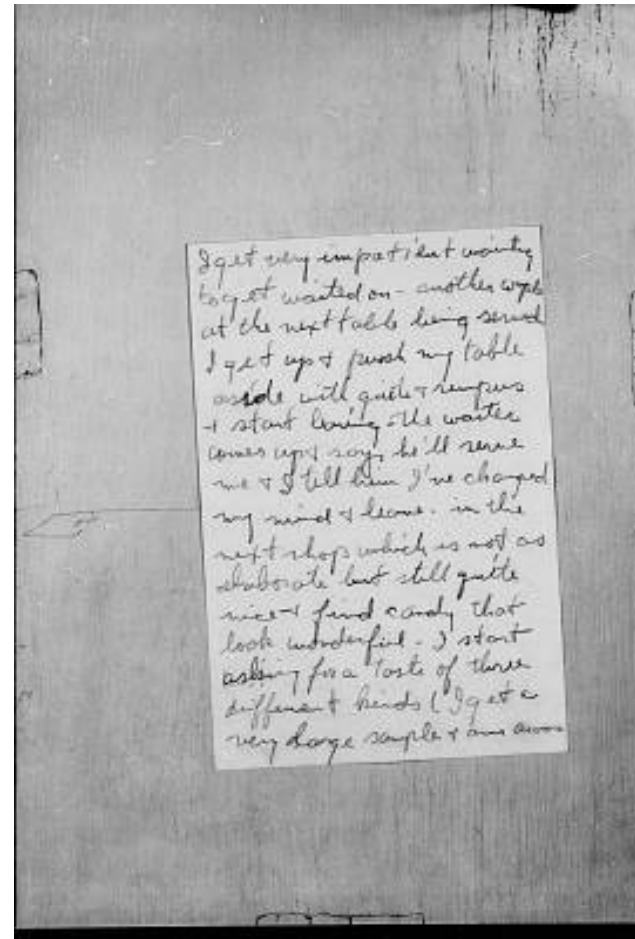 I get very impatient waiting
to get waited on - another couple
at the next table being served
I get up & push my table
aside with quite a
& start leaving - the waiter
comes up & says he'll serve
me & I tell him I've changed
my mind & leave. in the
next shop which is not as
elaborate but still quite
nice I find candy that
look wonderful - I start
asking for a taste of three
different kinds ( I get a
very large sample & am